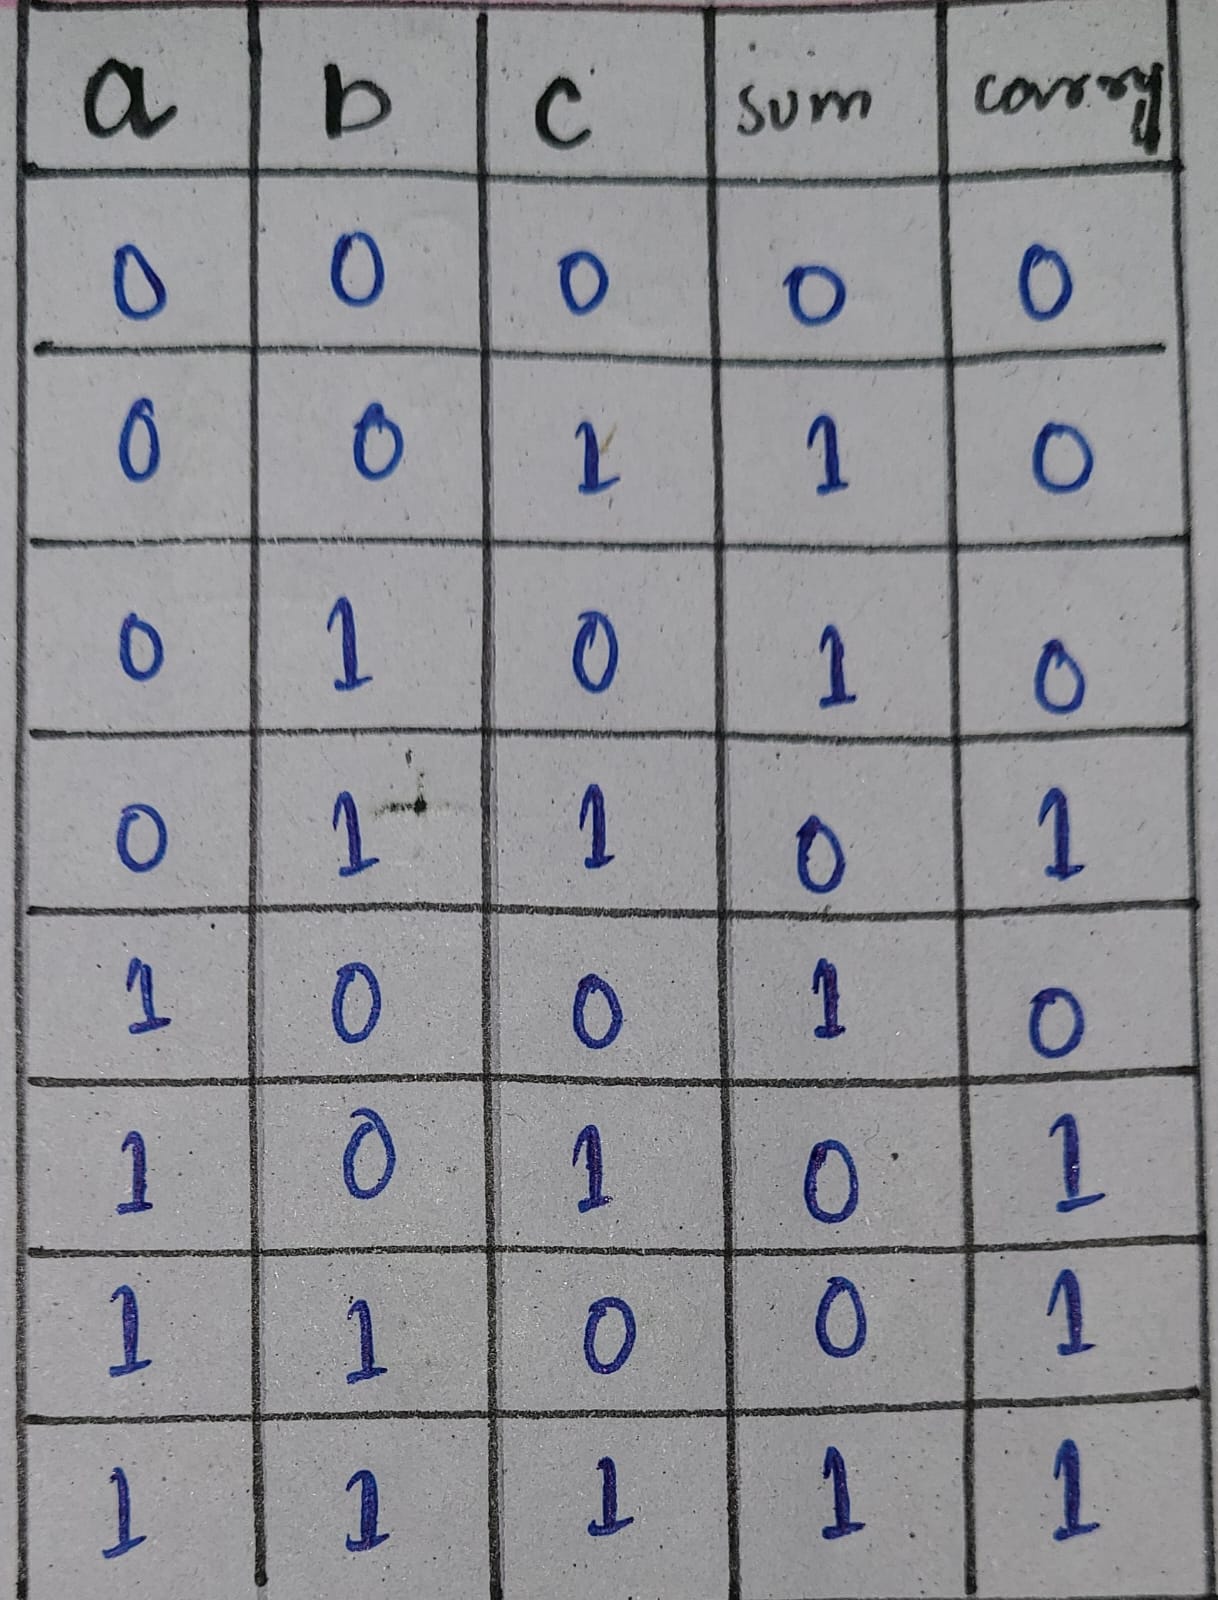 a b c sum carry
0 0 0 0 0
0 0 1 1 0
0 1 0 1 0
0 1 1 0 1
1 0 0 1 0
1 0 1 0 1
1 1 0 0 1
1 1 1 1 1